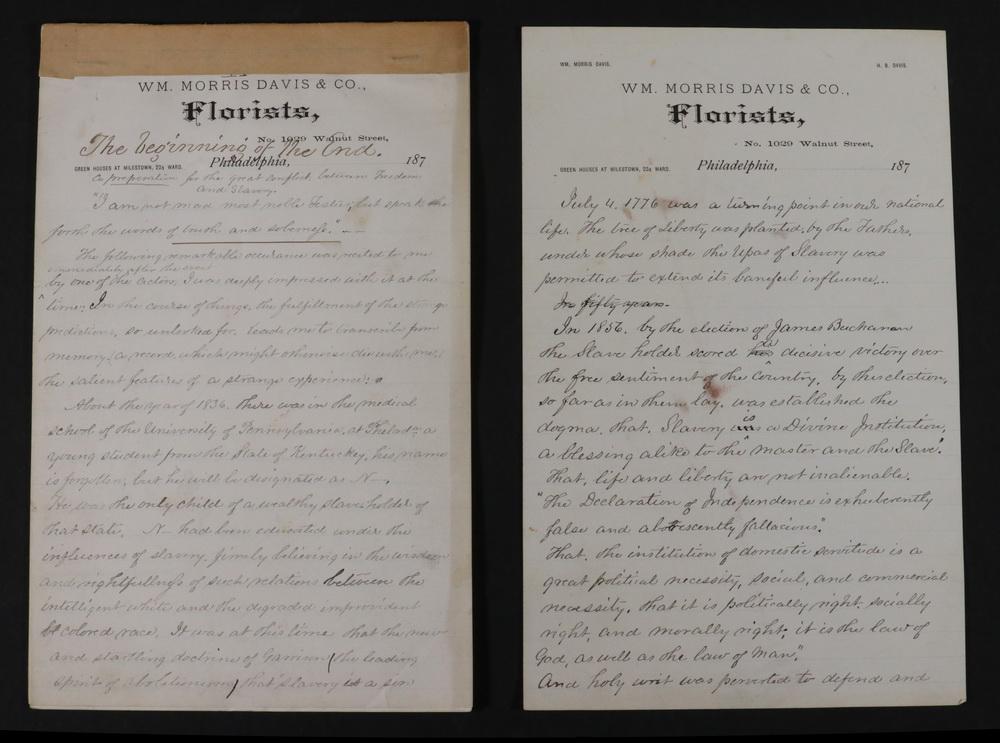 WM. MORRIS DAVIS & CO.,
Florists,
No. 1029 Walnut Street,
The beginning of the End.
Philadelphia, 187
GREEN HOUSES AT MILESTOWN, 22d WARD.
or preparation for the great conflict between Freedom
and Slavery.
"I am not mad most noble Festus, but speak the
forth the words of truth and soberness."
The following remarkable occurance was related to me
immediately after the event
by one of the actors, I was deeply impressed with it at the
time. In the course of things, the fulfillment of the strange
predictions, so unlooked for, leads me to transcribe from
memory, a record, which might otherwise die with me.
the salient features of a strange experience.
About the year of 1836. there was in the medical
school of the University of Pennsylvania, at Philada a
young student from the State of Kentuckey, his name
is forgotten, but he will be designated as N—.
He was the only child of a wealthy slave holder of
that State. N— had been educated under the
influences of slavery, firmly believing in the wisdom
and rightfullness of such relations between the
intelligent white and the degraded improvident
colored race. It was at this time that the new
and startling doctrine of Garrison (the leading
spirit of abolitionism) that slavery is a sin
WM. MORRIS DAVIS. H. B. DAVIS.
WM. MORRIS DAVIS & CO.,
Florists,
No. 1029 Walnut Street,
GREEN HOUSES AT MILESTOWN, 22d WARD. Philadelphia, 187
July 4. 1776 was a turning point in our national
life. The tree of Liberty was planted by the Fathers,
under whose shade the Upas of Slavery was
permitted to extend its baneful influence...
In fifty years.
In 1856. by the election of James Buchanan
the Slave holder scored a decisive victory over
the free sentiment of the Country. by this election,
so far as in them lay, was established the
dogma. that. Slavery is a Divine Institution,
a blessing alike to the master and the Slave."
That, life and liberty are not inalienable.
"The Declaration of Independence is exhuberently
false and aborescently fallacious."
That. the institution of domestic servitude is a
great political necessity, social, and commercial
necessity, that it is politically right, socially
right, and morally right. it is the law of
God, as well as the law of Man".
And holy writ was perverted to defend and